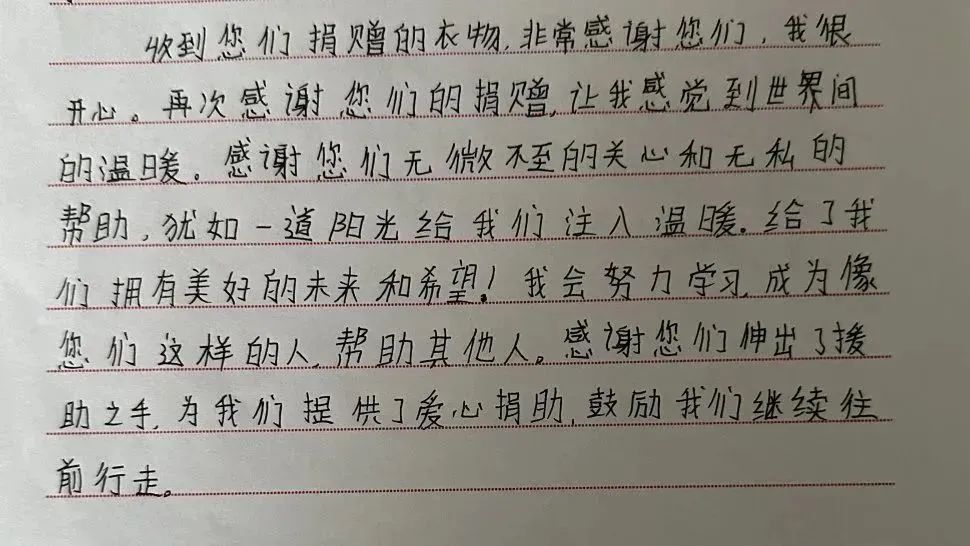 收到您们捐赠的衣物,非常感谢您们,我很
开心。再次感谢您们的捐赠,让我感觉到世界间
的温暖。感谢您们无微不至的关心和无私的
帮助,犹如一道阳光给我们注入温暖。给了我
们拥有美好的未来和希望!我会努力学习,成为像
您们这样的人,帮助其他人。感谢您们伸出了援
助之手,为我们提供了爱心捐助,鼓励我们继续往
前行走。